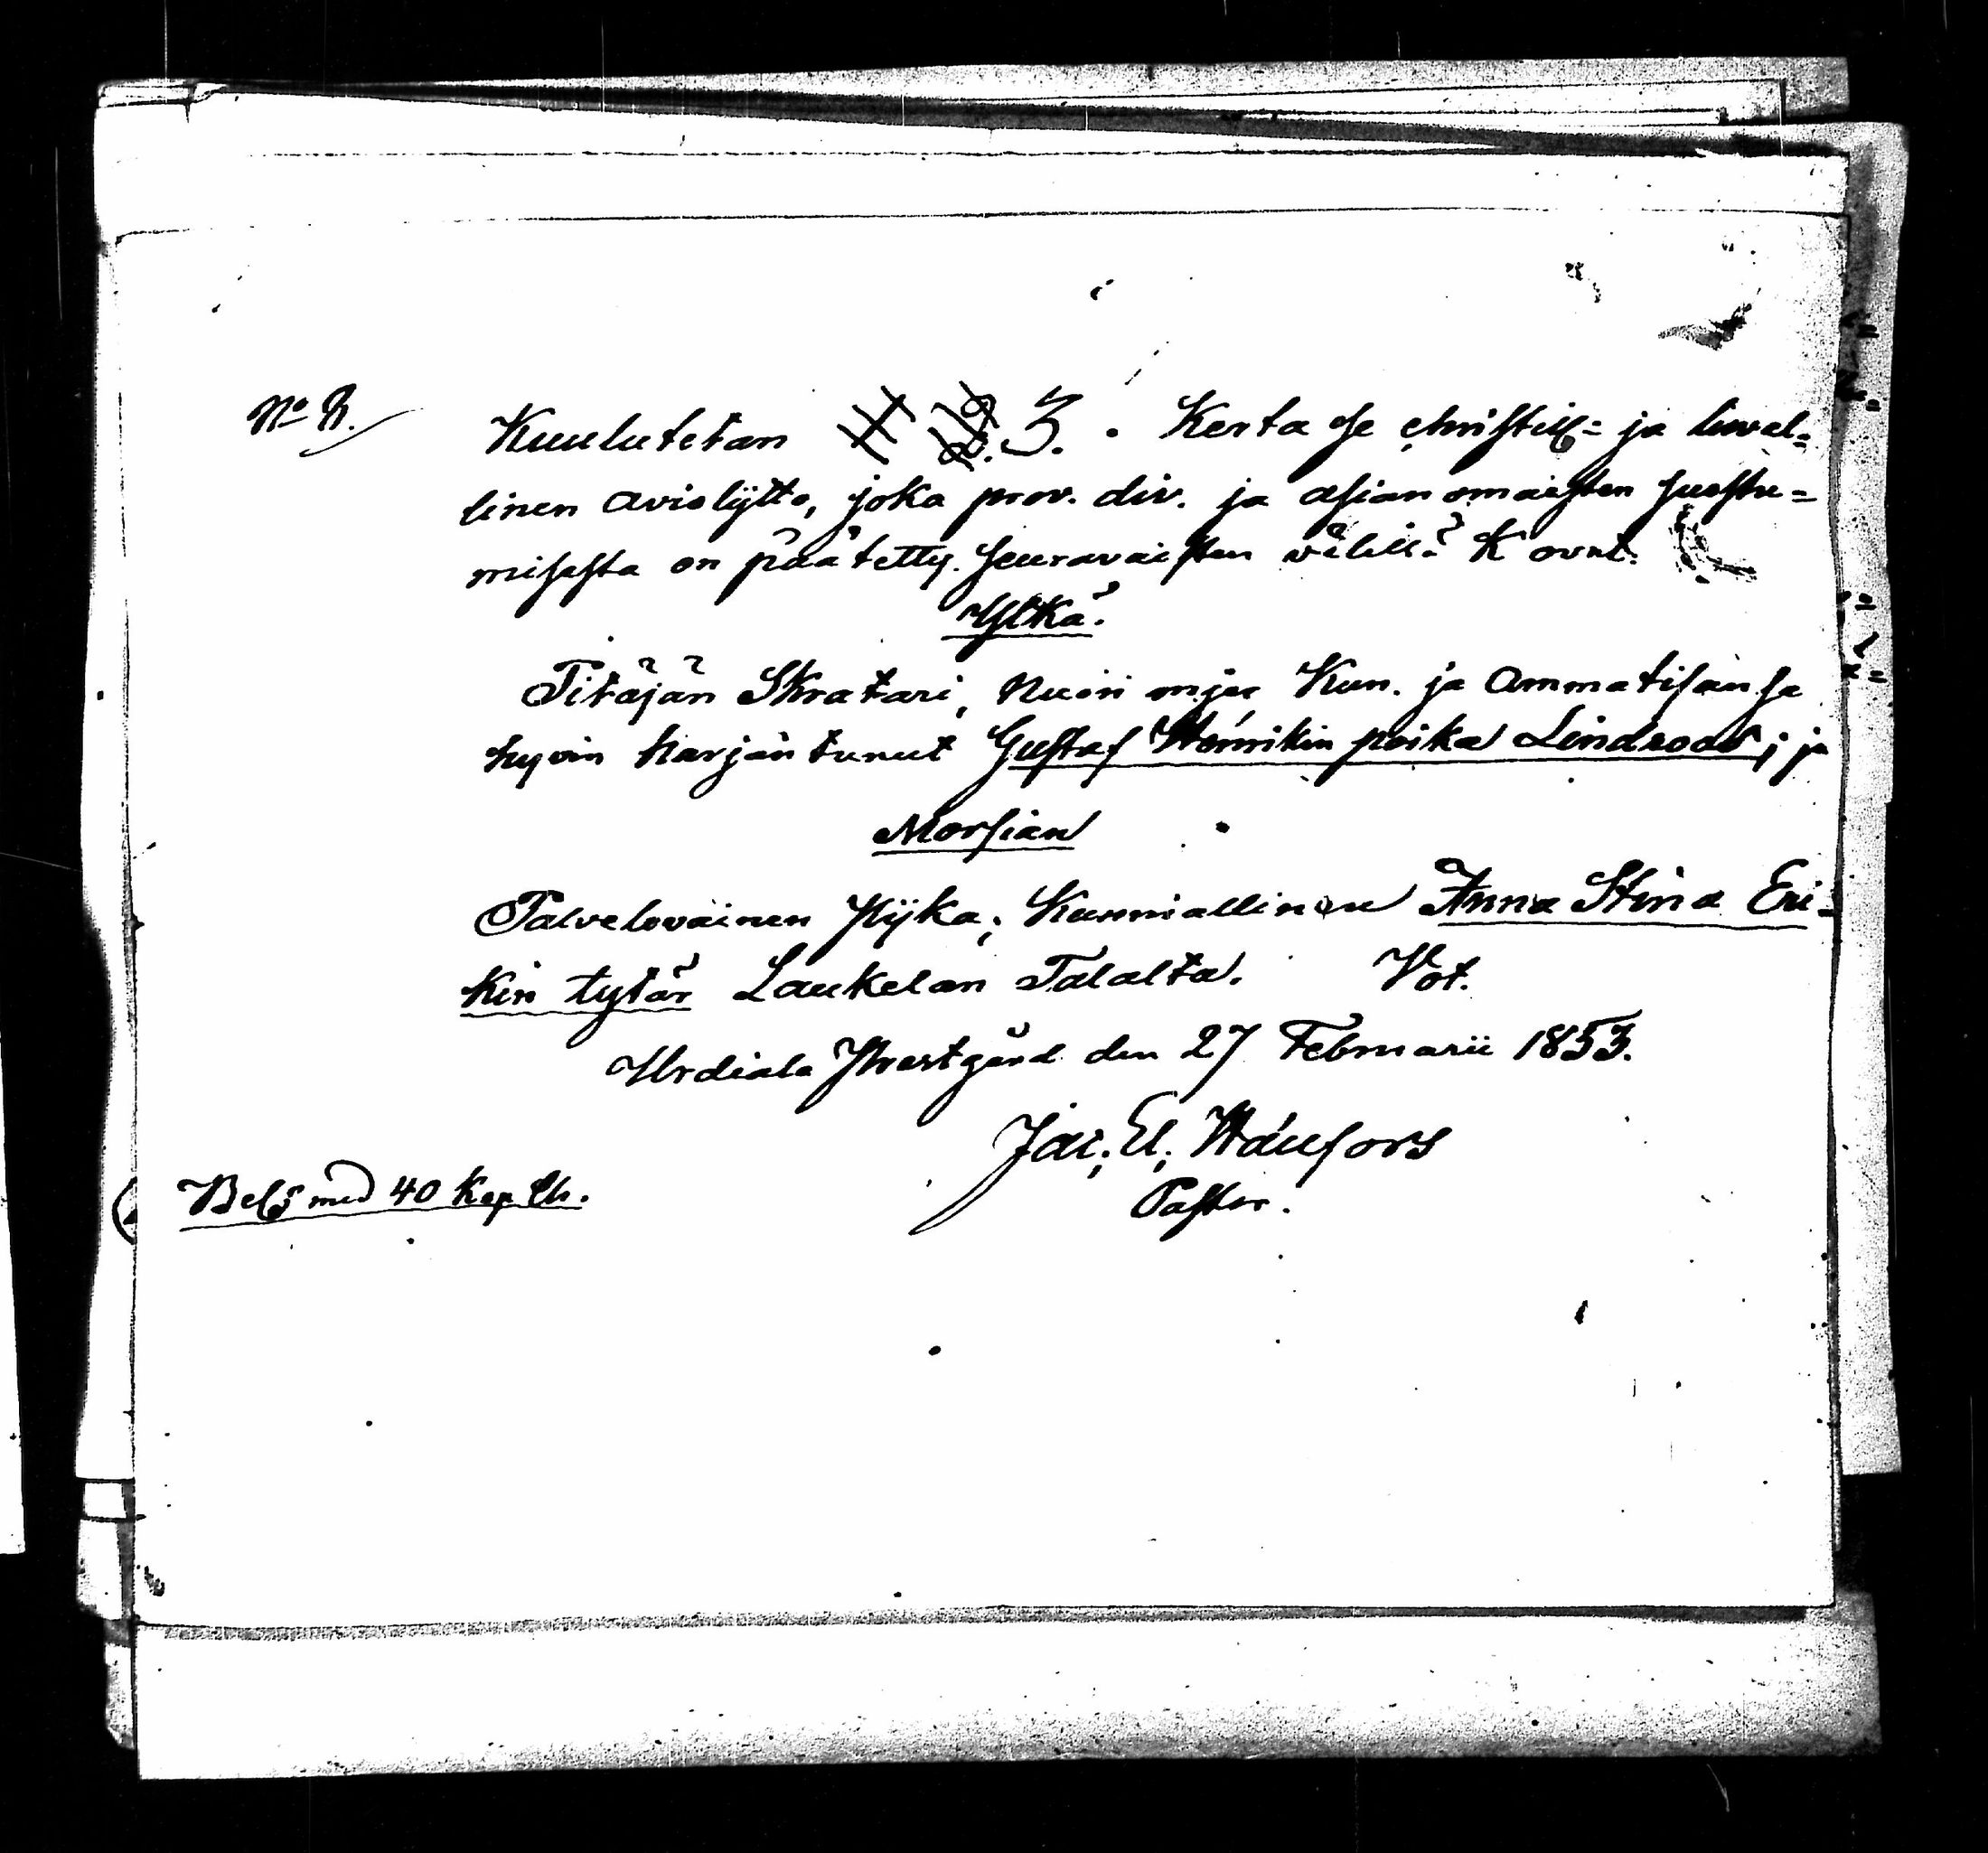 Kuulutetan 3. Kerta se christill= ja luval=
linen avioliitto, joka prov. div. ja asianomaisten suostu=
misesta on päätetty seuravaisten välillä K ovat.
Ylkä.
Pitäjän Skratari, Nuori mjes Kun. ja Ammatisansa
hyvin harjäntunut Gustaf Henrikin poika Lindroos; ja
Morsian
Palveloväinen Pijka; Kunniallinen Anna Stina Eri=
kin tytär Laukelan Talalta. Vot.
Urdiala Prestgård den 27 Februarii 1853.
Pastor.
Bels med 40 Kop